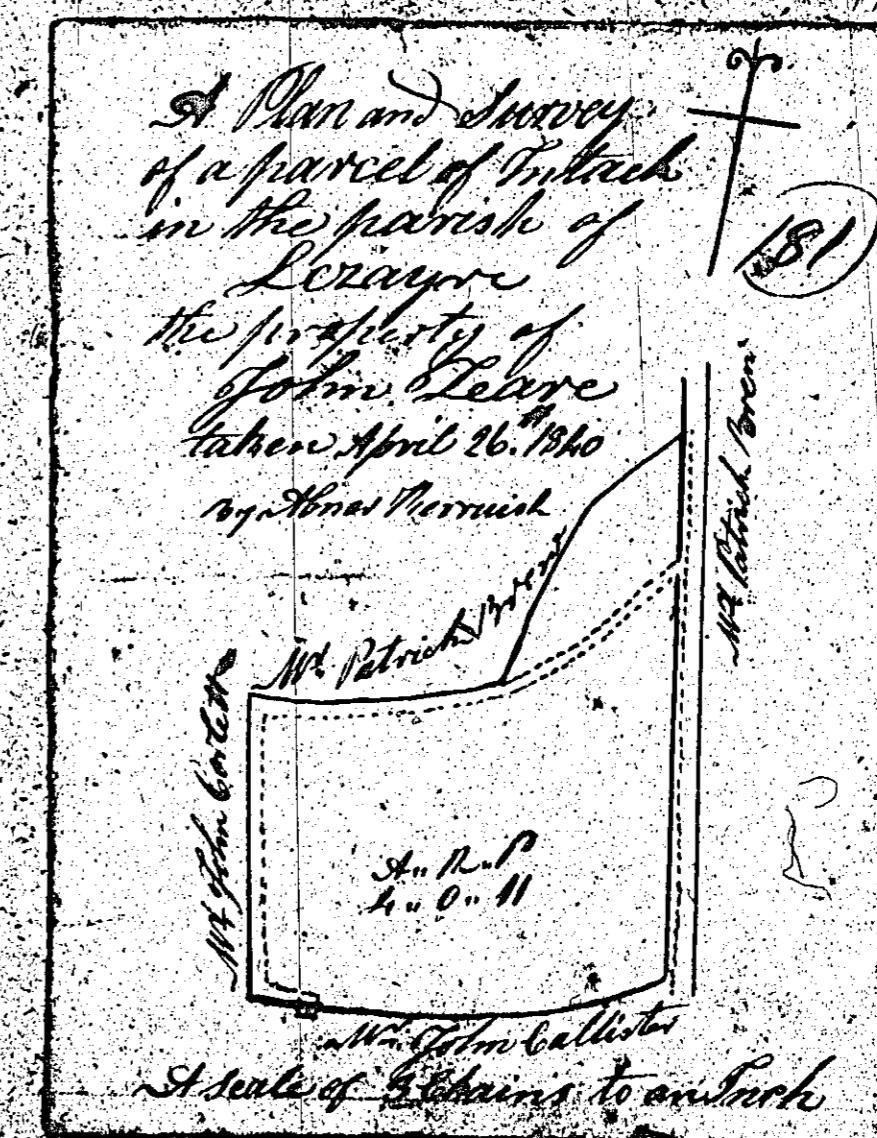 A Plan and Survey
of a parcel of Intack
in the parish of
Lezayre
the property of
John Teare
taken April 26.th 1840
by Kerruish
181
Mr. Patrick
Mr. Patrick
Mr. John Corlett
A.. R.. P
4.. 0.. 11
Mr. John Callister
A scale of 3 Chains to an Inch